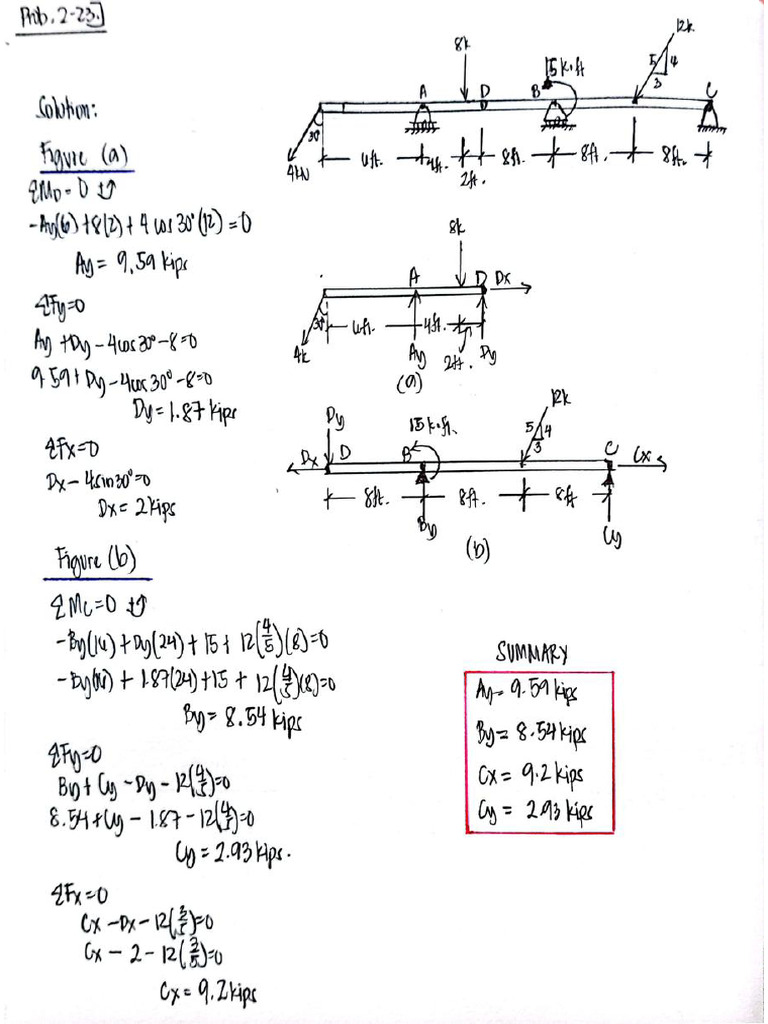 Prob. 2-23.
8k
12k
15 k·ft
5
4
3
A
D
B
C
30°
4k
6ft.
4ft.
2ft.
8ft.
8ft.
8ft.
Solution:
Figure (a)
ΣMD = 0
-Ay(6) + 8(2) + 4 cos 30° (12) = 0
Ay = 9.59 kips
ΣFy = 0
Ay + Dy - 4cos30° - 8 = 0
9.59 + Dy - 4cos30° - 8 = 0
Dy = 1.87 kips
ΣFx = 0
Dx - 4sin30° = 0
Dx = 2 kips
8k
A
D
Dx
30°
4k
6ft.
4ft.
2ft.
Ay
Dy
(a)
Dy
15 k·ft.
12k
5
4
3
Dx
D
B
C
Cx
8ft.
8ft.
8ft
By
Cy
(b)
Figure (b)
ΣMC = 0
-By(16) + Dy(24) + 15 + 12(4/5)(8) = 0
-By(16) + 1.87(24) + 15 + 12(4/5)(8) = 0
By = 8.54 kips
ΣFy = 0
By + Cy - Dy - 12(4/5) = 0
8.54 + Cy - 1.87 - 12(4/5) = 0
Cy = 2.93 kips.
ΣFx = 0
Cx - Dx - 12(3/5) = 0
Cx - 2 - 12(3/5) = 0
Cx = 9.2 kips
SUMMARY
Ay = 9.59 kips
By = 8.54 kips
Cx = 9.2 kips
Cy = 2.93 kips